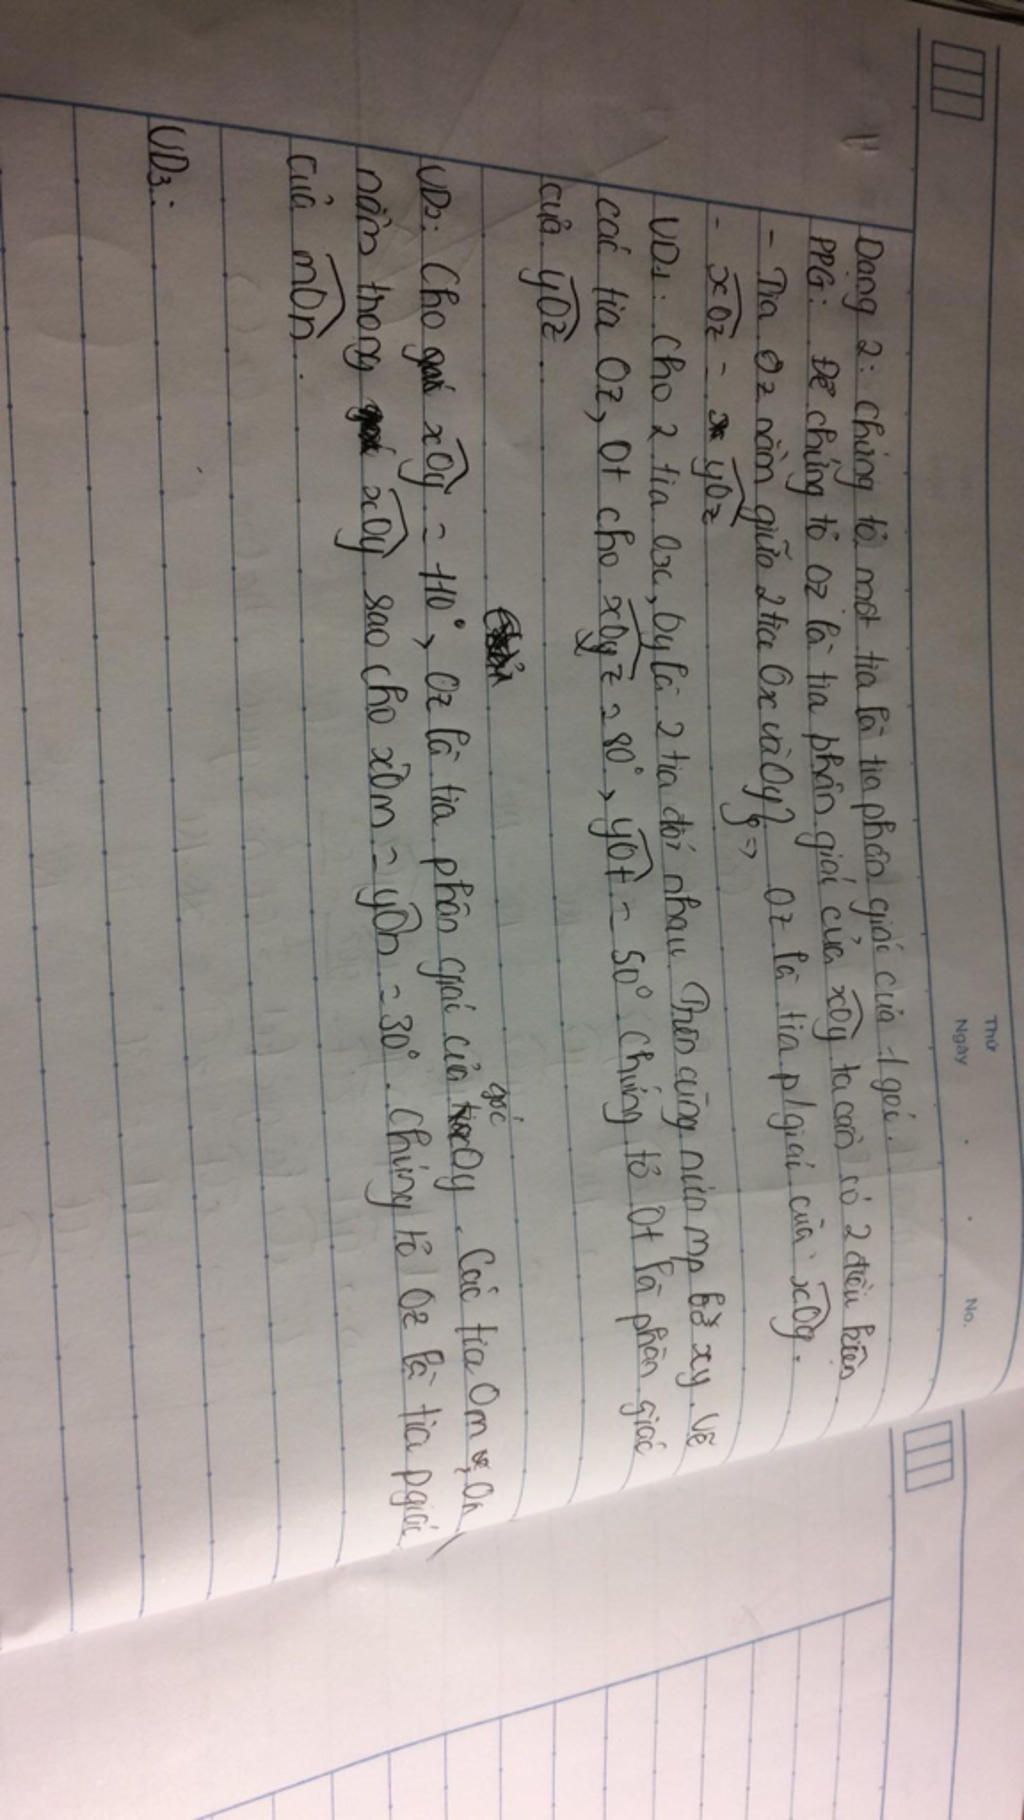 Thứ
Ngày
No.
Dạng 2: chứng tỏ một tia là tia phân giác của 1 góc.
PPG: Để chứng tỏ Oz là tia phân giác của xOy ta cần có 2 điều kiện
- Tia Oz nằm giữa 2 tia Ox và Oy } => Oz là tia p/giác của xOy.
- xOz = yOz
VD1: Cho 2 tia Ox, Oy là 2 tia đối nhau. Trên cùng nửa mp bờ xy. Vẽ
các tia Oz, Ot cho xOz = 80°, yOt = 50° chứng tỏ Ot là phân giác
của yOz.
VD2: Cho xOy = 110°, Oz là tia phân giác của góc xOy. Các tia Om, On
nằm trong xOy sao cho xOm = yOn = 30°. Chứng tỏ Oz là tia pgiác
của mOn.
VD3: